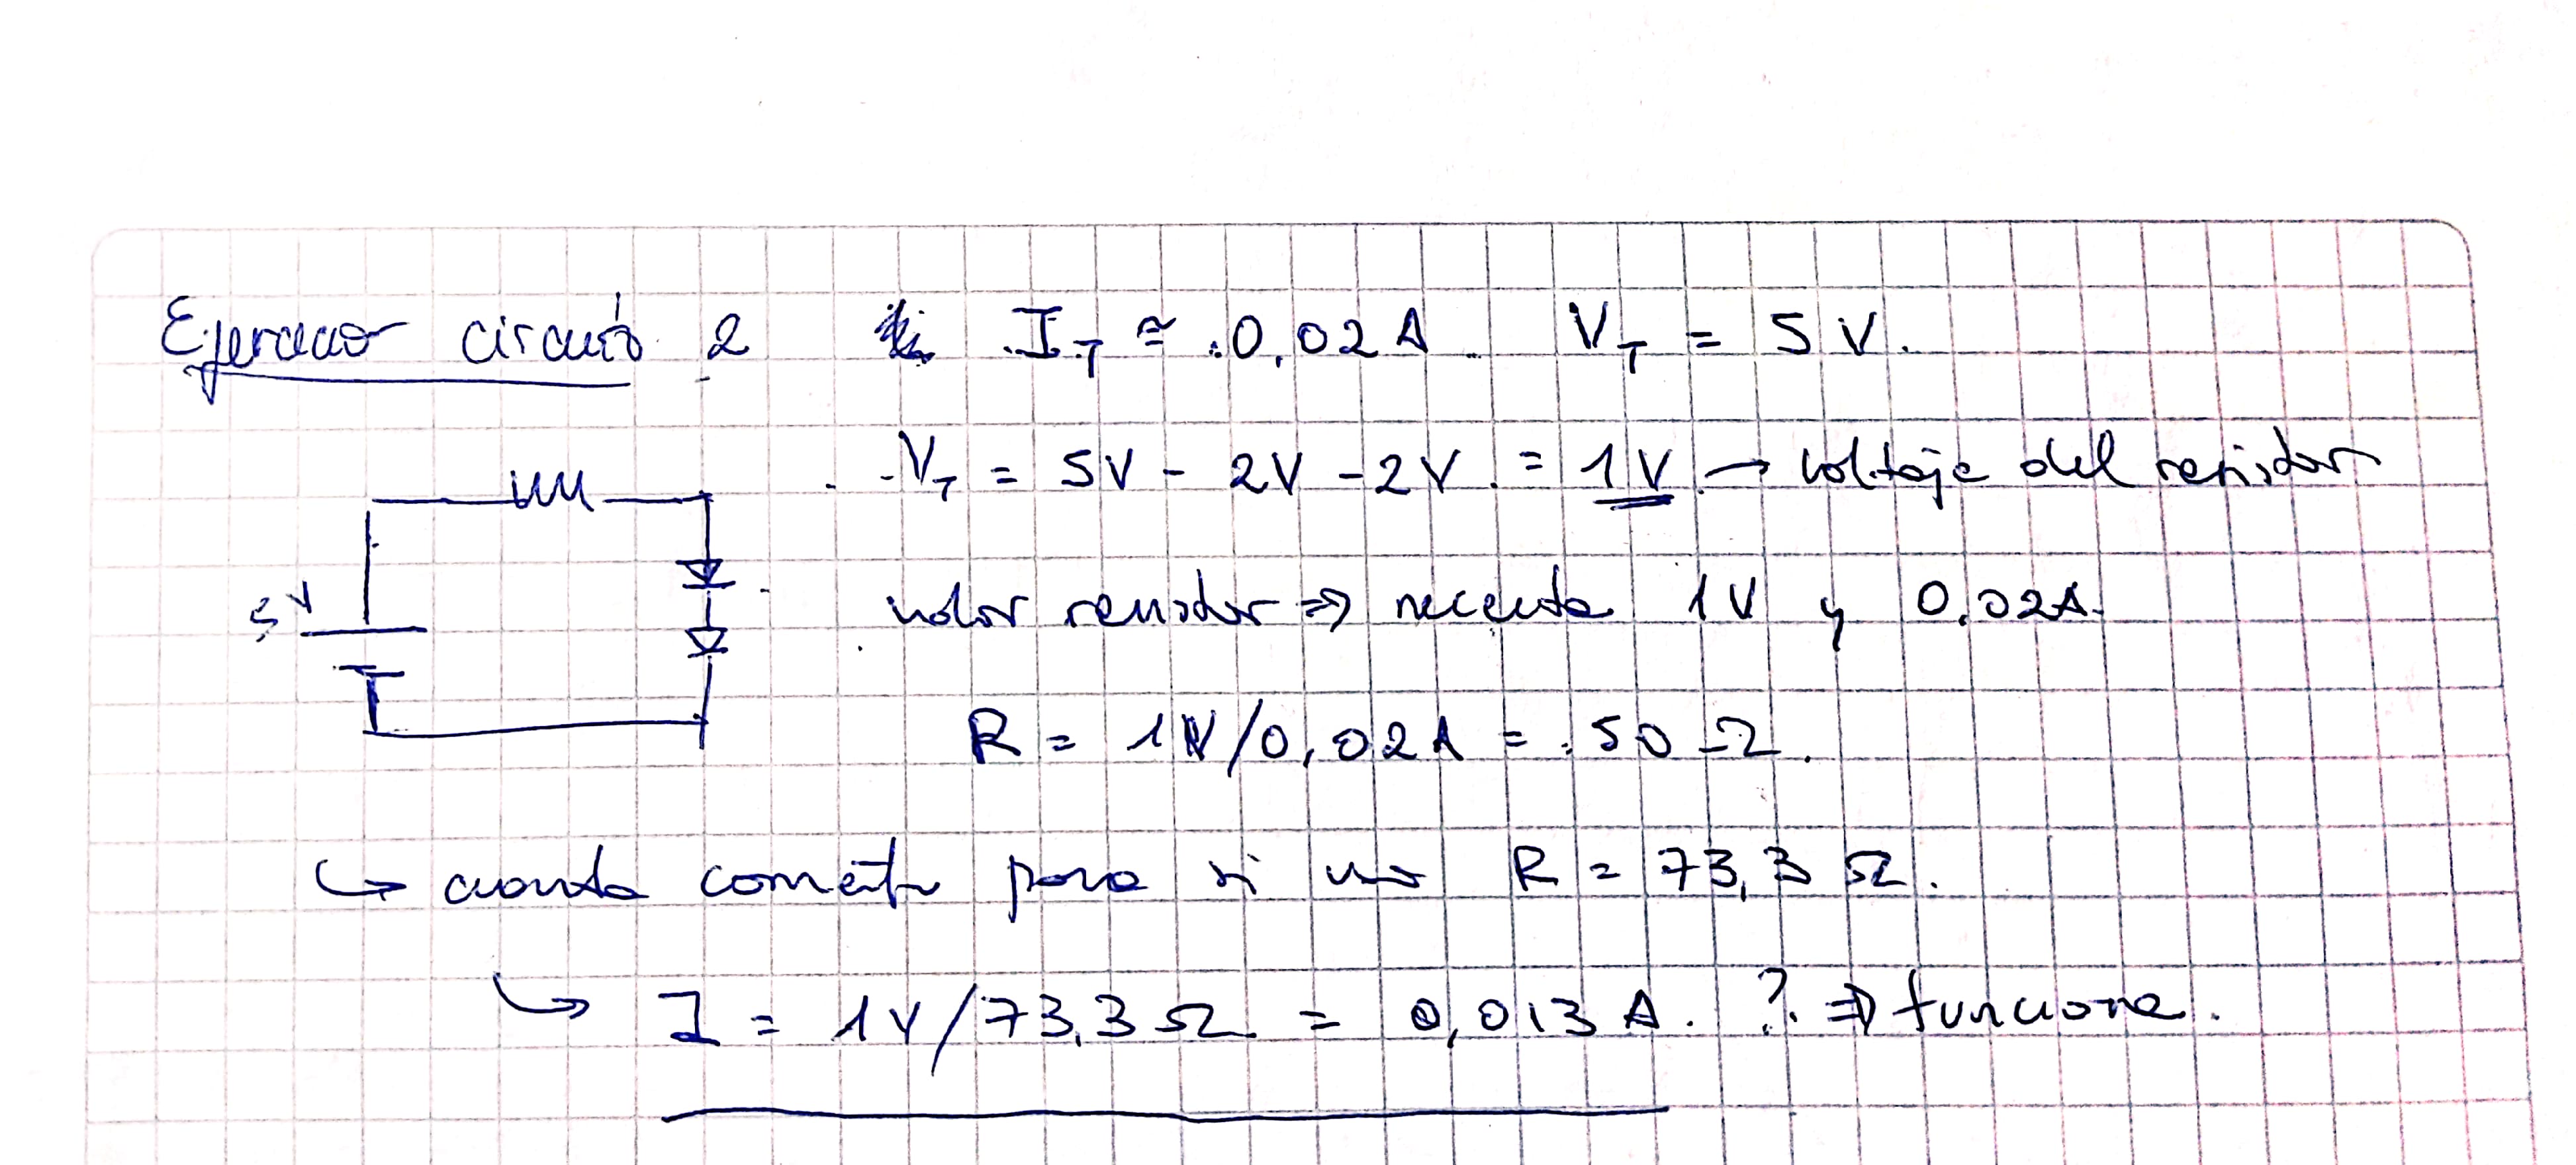 Ejercicio circuito 2 I_T ≅ 0,02 A V_T = 5 V.
V_T = 5V - 2V - 2V = 1V → voltaje del resistor
5V
valor resistor ⇒ necesita 1V y 0,02A.
R = 1V/0,02A = 50 Ω.
↳ cuanta corriente pasa si uso R = 73,3 Ω.
↳ I = 1V/73,3 Ω = 0,013 A. ? ⇒ funciona.